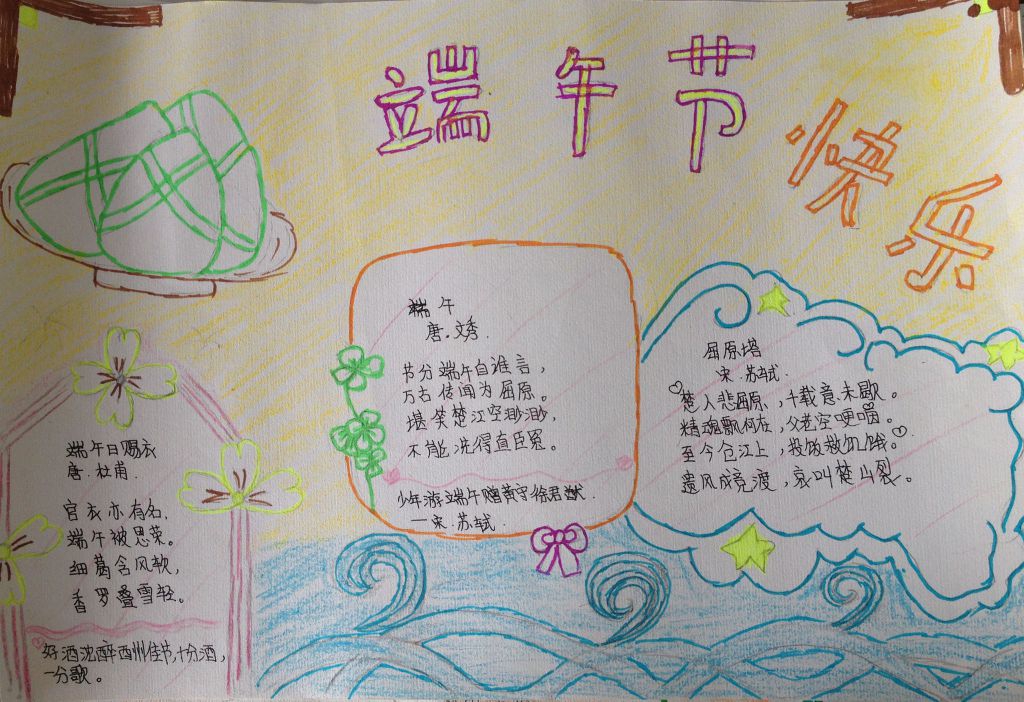 端午节
快乐
端午
唐.文秀.
节分端午自谁言，
万古传闻为屈原。
堪笑楚江空渺渺，
不能洗得直臣冤。
少年游端午赠黄守徐君猷.
一宋.苏轼.
屈原塔
宋.苏轼.
楚人悲屈原，千载意未歇。
精魂飘何在，父老空哽咽。
至今仓江上，投饭救饥饿。
遗风成竞渡，哀叫楚山裂。
端午日赐衣
唐.杜甫.
宫衣亦有名，
端午被恩荣。
细葛含风软，
香罗叠雪轻。
好酒沈醉西州佳节，十分酒，
一分歌。